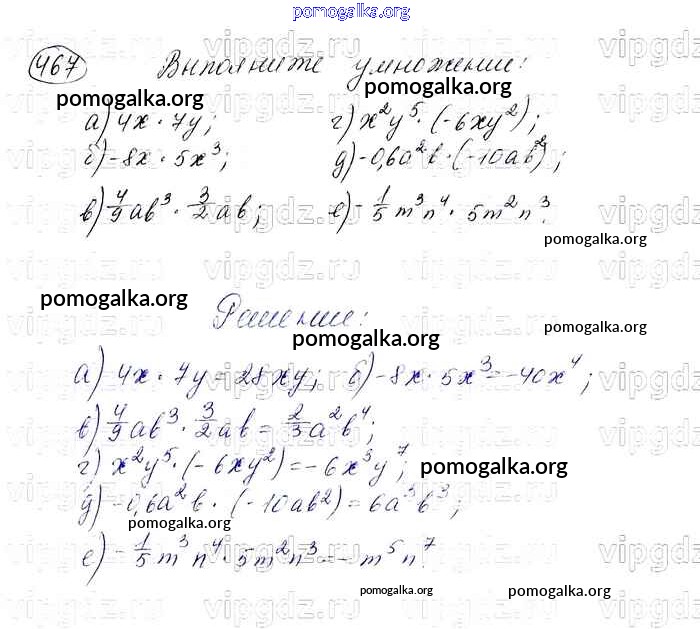 pomogalka.org
467 Выполните умножение:
pomogalka.org pomogalka.org
а) 4x · 7y; г) x²y⁵ · (-6xy²);
б) -8x · 5x³; д) -0,6a²b · (-10ab²);
в) 4/9 ab³ · 3/2 ab; е) -1/5 m³n⁴ · 5m²n³.
pomogalka.org
pomogalka.org Решение:
pomogalka.org pomogalka.org
а) 4x · 7y = 28xy; б) -8x · 5x³ = -40x⁴;
в) 4/9 ab³ · 3/2 ab = 2/3 a²b⁴;
г) x²y⁵ · (-6xy²) = -6x³y⁷; pomogalka.org
д) -0,6a²b · (-10ab²) = 6a³b³;
pomogalka.org
е) -1/5 m³n⁴ · 5m²n³ = -m⁵n⁷.
pomogalka.org pomogalka.org